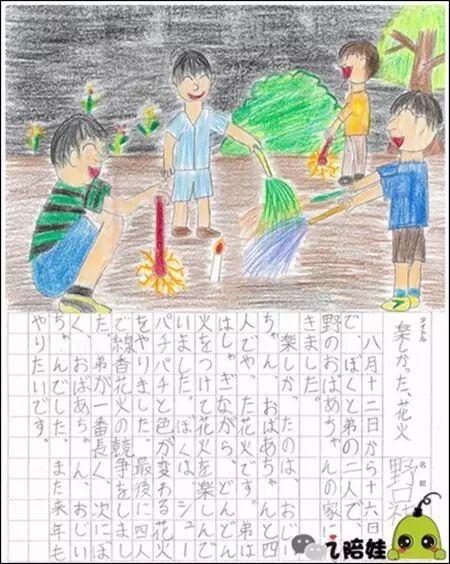 タイトル
楽しかった、花火
名前
野口
八月十二日から十六日
で、ぼくと弟の二人で、
野のおばあちゃんの家に
きました。
楽しかったのは、おじい
ちゃん、おばあちゃんと四
人でやった花火です。弟は
はしゃぎながら、どんどん
火をつけて花火を楽しんで
いました。ぼくは、シュー
パチパチと色が変わる花火
をやりました。最後に四人
で線香花火の競争をしまし
た。弟が一番長く、次にぼ
く、おばあちゃん、おじい
ちゃんでした。また来年も
やりたいです。
陪娃